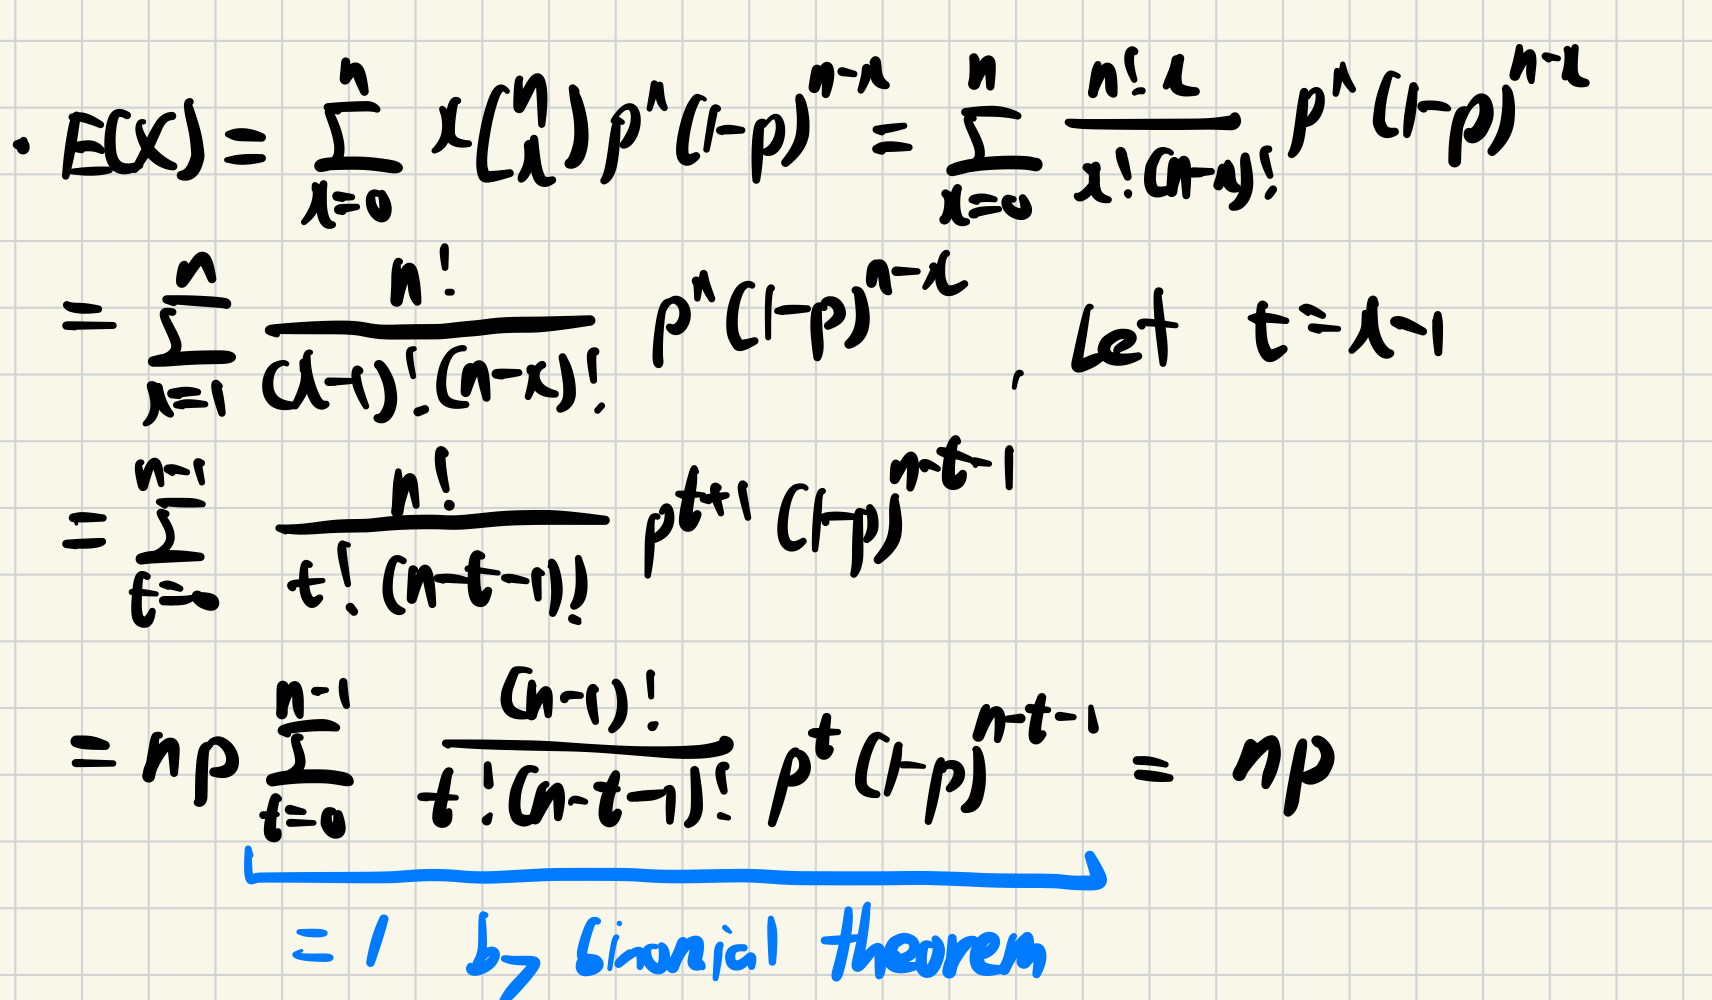 · E(X) = \sum_{x=0}^{n} x \binom{n}{x} p^x (1-p)^{n-x} = \sum_{x=0}^{n} \frac{n! x}{x!(n-x)!} p^x (1-p)^{n-x}
= \sum_{x=1}^{n} \frac{n!}{(x-1)!(n-x)!} p^x (1-p)^{n-x} , Let t = x-1
= \sum_{t=0}^{n-1} \frac{n!}{t!(n-t-1)!} p^{t+1} (1-p)^{n-t-1}
= np \sum_{t=0}^{n-1} \frac{(n-1)!}{t!(n-t-1)!} p^t (1-p)^{n-t-1} = np
= 1 by binomial theorem